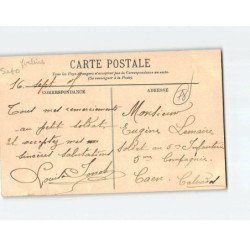 Yvelines
CARTE POSTALE
Tous les Pays étrangers n'acceptent pas la Correspondance au recto
(Se renseigner à la Poste)
CORRESPONDANCE
ADRESSE
78
16 Sept
Tous mes remerciements
au petit soldat
et acceptez mes
sincères salutations
Monsieur
Eugène Lemaire
Soldat au 5e Infanterie
5me Compagnie
Caen
Calvados